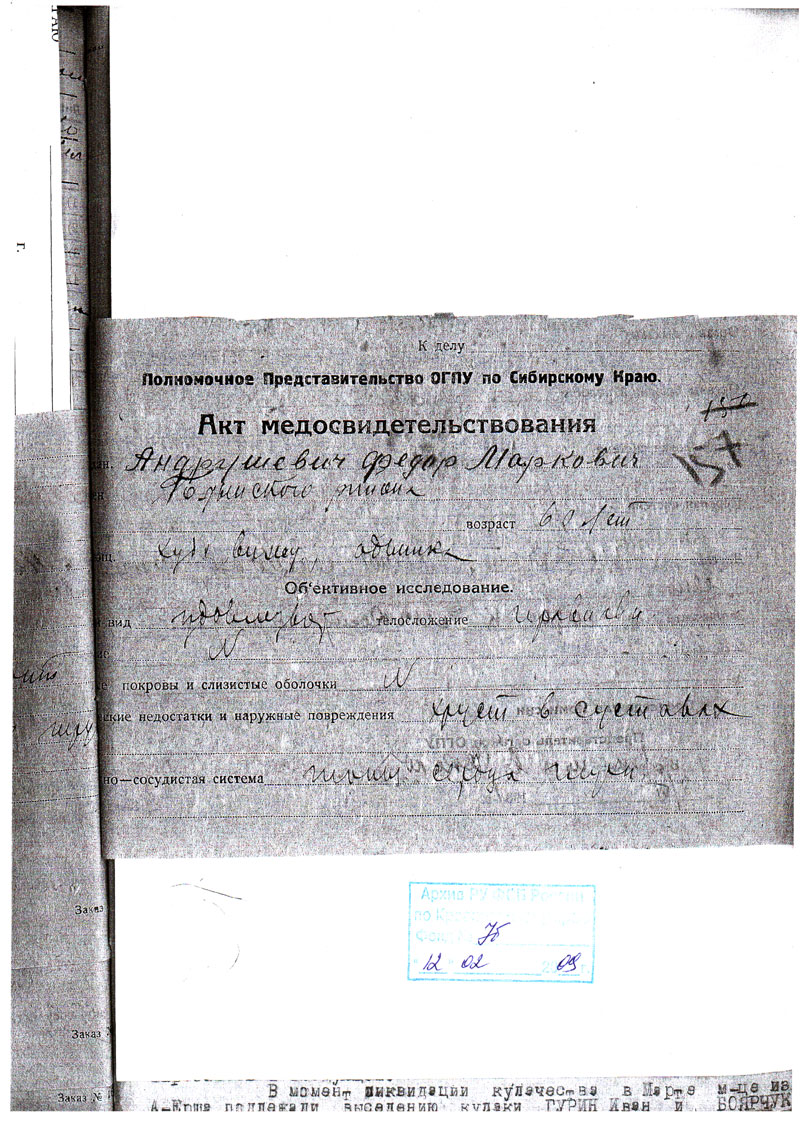 г.
К делу
Полномочное Представительство ОГПУ по Сибирскому Краю.
Акт медосвидетельствования
157
Андрушевич Федор Маркович
возраст 60 лет
одышка
Об'ективное исследование.
вид телосложение
N
покровы и слизистые оболочки N
ские недостатки и наружные повреждения хруст в суставах
но—сосудистая система тоны сердца глухи
Архив РУ ФСБ России
по
7б
"12" 02 09 г.
Заказ
Заказ
Заказ №
В момент ликвидации кулачества в Марте м-це из
А-Ерша подлежали выселению кулаки ГУРИН Иван и БОЯРЧУК